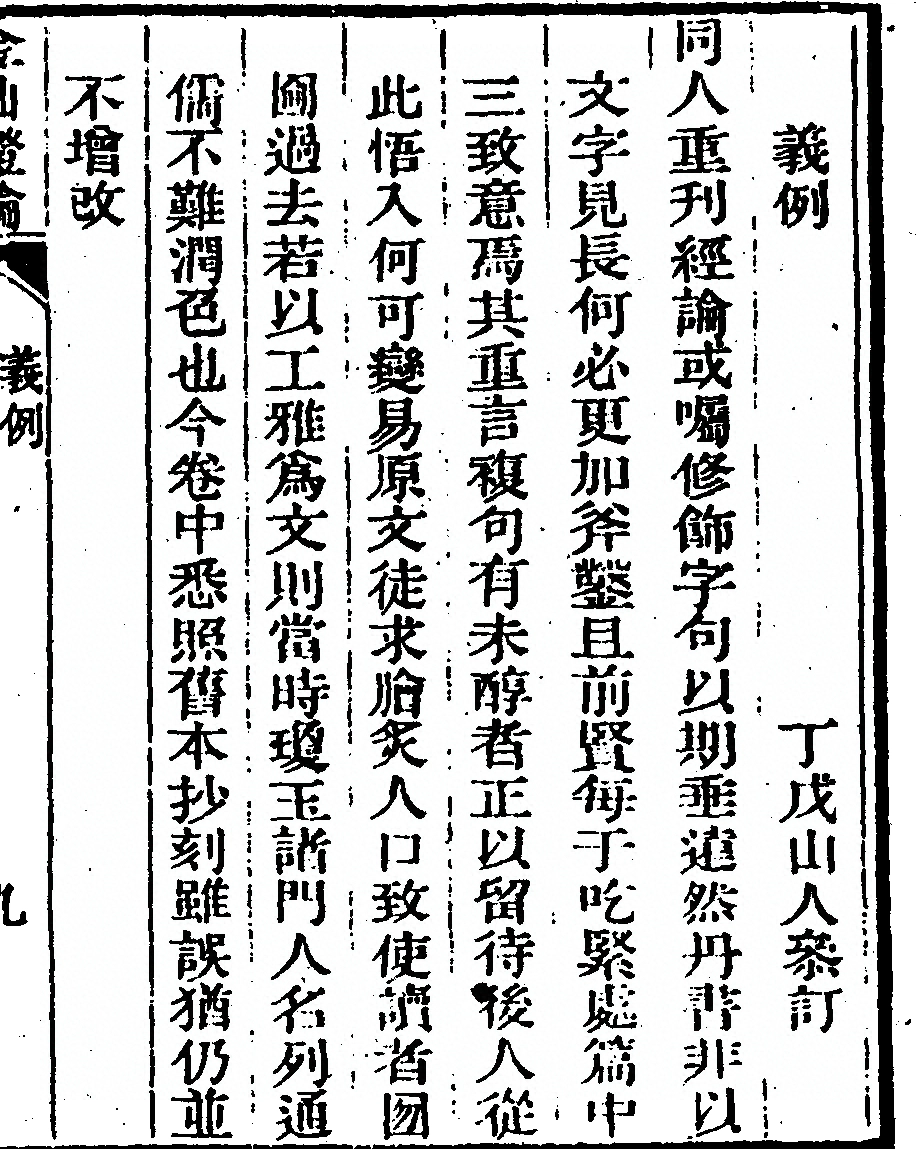 義例　丁戊山人叅訂
同人重刊經論或囑修飾字句以期垂遠然丹書非以
文字見長何必更加斧鑿且前賢每于吃緊處篇中
三致意焉其重言複句有未醇者正以留待後人從
此悟入何可變易原文徒求膾炙人口致使讀者囫
圇過去若以工雅爲文則當時瓊玉諸門人名列通
儒不難潤色也今卷中悉照舊本抄刻雖誤猶仍並
不增改
義例